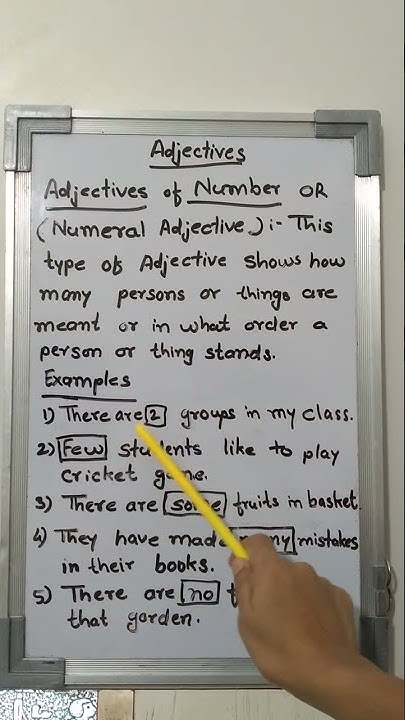 Adjectives
Adjectives of Number OR
(Numeral Adjective) :- This
type of Adjective shows how
many persons or things are
meant or in what order a
person or thing stands.
Examples
1) There are 2 groups in my class.
2) Few students like to play
cricket game.
3) There are some fruits in basket.
4) They have made many mistakes
in their books.
5) There are no
that garden.